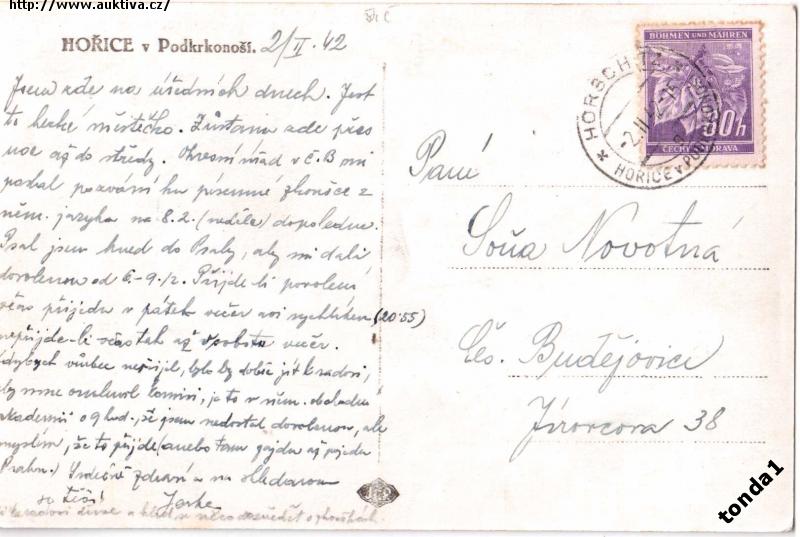 http://www.auktiva.cz/
HOŘICE v Podkrkonoší. 2/II. 42
Jsem zde na úředních dnech. Jest
to hezké městečko. Zůstanu zde přes
noc až do středy. Okresní úřad v Č.B mi
poslal pozvání ku písemné zkoušce z
něm. jazyka na 8.2. (neděle) dopoledne.
Psal jsem hned do Prahy, aby mi dali
dovolenou od 6.-9./2. Přijde-li povolení
včas přijedu v pátek večer asi rychlíkem (20.55)
nepřijde-li včas tak až v sobotu večer.
Kdybych vůbec nepřijel, bylo by dobře jít k radovi,
aby mne omluvil
o 9 hod., že jsem nedostal dovolenou, ale
myslím, že to přijde (anebo tam pojedu až pojedu
Prahou.) Srdečně zdraví a na shledanou
se těší! Jarka
BÖHMEN UND MÄHREN
60 h
ČECHY A MORAVA
HORSCHITZ
2.II.42-15
HOŘICE v PODKRKONOŠÍ
Paní
Soňa Novotná
Čes. Budějovice
Jírovcova 38
tonda1